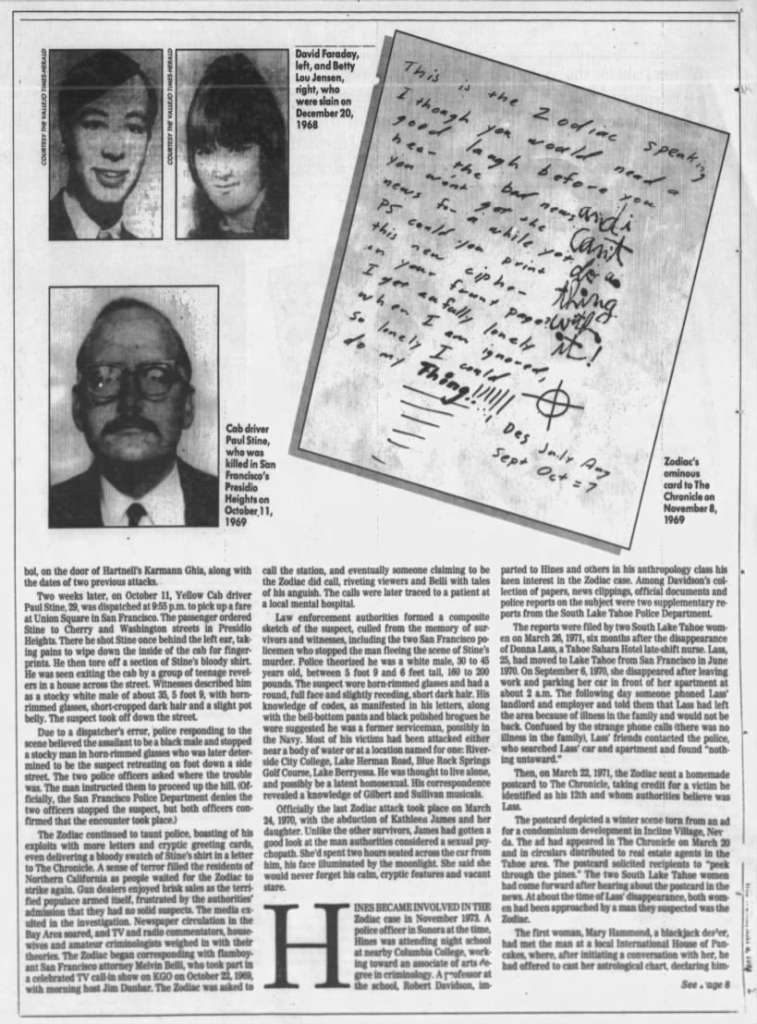 COURTESY THE VALLEJO TIMES-HERALD
COURTESY THE VALLEJO TIMES-HERALD
David Faraday,
left, and Betty
Lou Jensen,
right, who
were slain on
December 20,
1968
This is the Zodiac speaking
I though you would need a
good laugh before you
hear the bad news
you won't get the
news for a while yet
PS could you print
this new cipher
in your front page?
I get awfully lonely
when I am ignored,
so lonely I could
do my Thing!!!!!!
and i
can't
do a
thing
with
it!
Des July Aug
Sept Oct = 7
Cab driver
Paul Stine,
who was
killed in San
Francisco's
Presidio
Heights on
October 11,
1969
Zodiac's
ominous
card to The
Chronicle on
November 8,
1969
bol, on the door of Hartnell's Karmann Ghia, along with
the dates of two previous attacks.
Two weeks later, on October 11, Yellow Cab driver
Paul Stine, 29, was dispatched at 9:55 p.m. to pick up a fare
at Union Square in San Francisco. The passenger ordered
Stine to Cherry and Washington streets in Presidio
Heights. There he shot Stine once behind the left ear, tak-
ing pains to wipe down the inside of the cab for finger-
prints. He then tore off a section of Stine's bloody shirt.
He was seen exiting the cab by a group of teenage revel-
ers in a house across the street. Witnesses described him
as a stocky white male of about 35, 5 foot 9, with horn-
rimmed glasses, short-cropped dark hair and a slight pot
belly. The suspect took off down the street.
Due to a dispatcher's error, police responding to the
scene believed the assailant to be a black male and stopped
a stocky man in horn-rimmed glasses who was later deter-
mined to be the suspect retreating on foot down a side
street. The two police officers asked where the trouble
was. The man instructed them to proceed up the hill. (Of-
ficially, the San Francisco Police Department denies the
two officers stopped the suspect, but both officers con-
firmed that the encounter took place.)
The Zodiac continued to taunt police, boasting of his
exploits with more letters and cryptic greeting cards,
even delivering a bloody swatch of Stine's shirt in a letter
to The Chronicle. A sense of terror filled the residents of
Northern California as people waited for the Zodiac to
strike again. Gun dealers enjoyed brisk sales as the terri-
fied populace armed itself, frustrated by the authorities'
admission that they had no solid suspects. The media ex-
ulted in the investigation. Newspaper circulation in the
Bay Area soared, and TV and radio commentators, house-
wives and amateur criminologists weighed in with their
theories. The Zodiac began corresponding with flamboy-
ant San Francisco attorney Melvin Belli, who took part in
a celebrated TV call-in show on KGO on October 22, 1969,
with morning host Jim Dunbar. The Zodiac was asked to
call the station, and eventually someone claiming to be
the Zodiac did call, riveting viewers and Belli with tales
of his anguish. The calls were later traced to a patient at
a local mental hospital.
Law enforcement authorities formed a composite
sketch of the suspect, culled from the memory of sur-
vivors and witnesses, including the two San Francisco po-
licemen who stopped the man fleeing the scene of Stine's
murder. Police theorized he was a white male, 30 to 45
years old, between 5 foot 9 and 6 feet tall, 160 to 200
pounds. The suspect wore horn-rimmed glasses and had a
round, full face and slightly receding, short dark hair. His
knowledge of codes, as manifested in his letters, along
with the bell-bottom pants and black polished brogues he
wore suggested he was a former serviceman, possibly in
the Navy. Most of his victims had been attacked either
near a body of water or at a location named for one: River-
side City College, Lake Herman Road, Blue Rock Springs
Golf Course, Lake Berryessa. He was thought to live alone,
and possibly be a latent homosexual. His correspondence
revealed a knowledge of Gilbert and Sullivan musicals.
Officially the last Zodiac attack took place on March
24, 1970, with the abduction of Kathleen James and her
daughter. Unlike the other survivors, James had gotten a
good look at the man authorities considered a sexual psy-
chopath. She'd spent two hours seated across the car from
him, his face illuminated by the moonlight. She said she
would never forget his calm, cryptic features and vacant
stare.
HINES BECAME INVOLVED IN THE
Zodiac case in November 1973. A
police officer in Sonora at the time,
Hines was attending night school
at nearby Columbia College, work-
ing toward an associate of arts de-
gree in criminology. A professor at
the school, Robert Davidson, im-
parted to Hines and others in his anthropology class his
keen interest in the Zodiac case. Among Davidson's col-
lection of papers, news clippings, official documents and
police reports on the subject were two supplementary re-
ports from the South Lake Tahoe Police Department.
The reports were filed by two South Lake Tahoe wom-
en on March 26, 1971, six months after the disappearance
of Donna Lass, a Tahoe Sahara Hotel late-shift nurse. Lass,
25, had moved to Lake Tahoe from San Francisco in June
1970. On September 6, 1970, she disappeared after leaving
work and parking her car in front of her apartment at
about 2 a.m. The following day someone phoned Lass'
landlord and employer and told them that Lass had left
the area because of illness in the family and would not be
back. Confused by the strange phone calls (there was no
illness in the family), Lass' friends contacted the police,
who searched Lass' car and apartment and found "noth-
ing untoward."
Then, on March 22, 1971, the Zodiac sent a homemade
postcard to The Chronicle, taking credit for a victim he
identified as his 12th and whom authorities believe was
Lass.
The postcard depicted a winter scene torn from an ad
for a condominium development in Incline Village, Nev
da. The ad had appeared in The Chronicle on March 20
and in circulars distributed to real estate agents in the
Tahoe area. The postcard solicited recipients to "peek
through the pines." The two South Lake Tahoe women
had come forward after hearing about the postcard in the
news. At about the time of Lass' disappearance, both wom-
en had been approached by a man they suspected was the
Zodiac.
The first woman, Mary Hammond, a blackjack dealer,
had met the man at a local International House of Pan-
cakes, where, after initiating a conversation with her, he
had offered to cast her astrological chart, declaring him-
See page 8